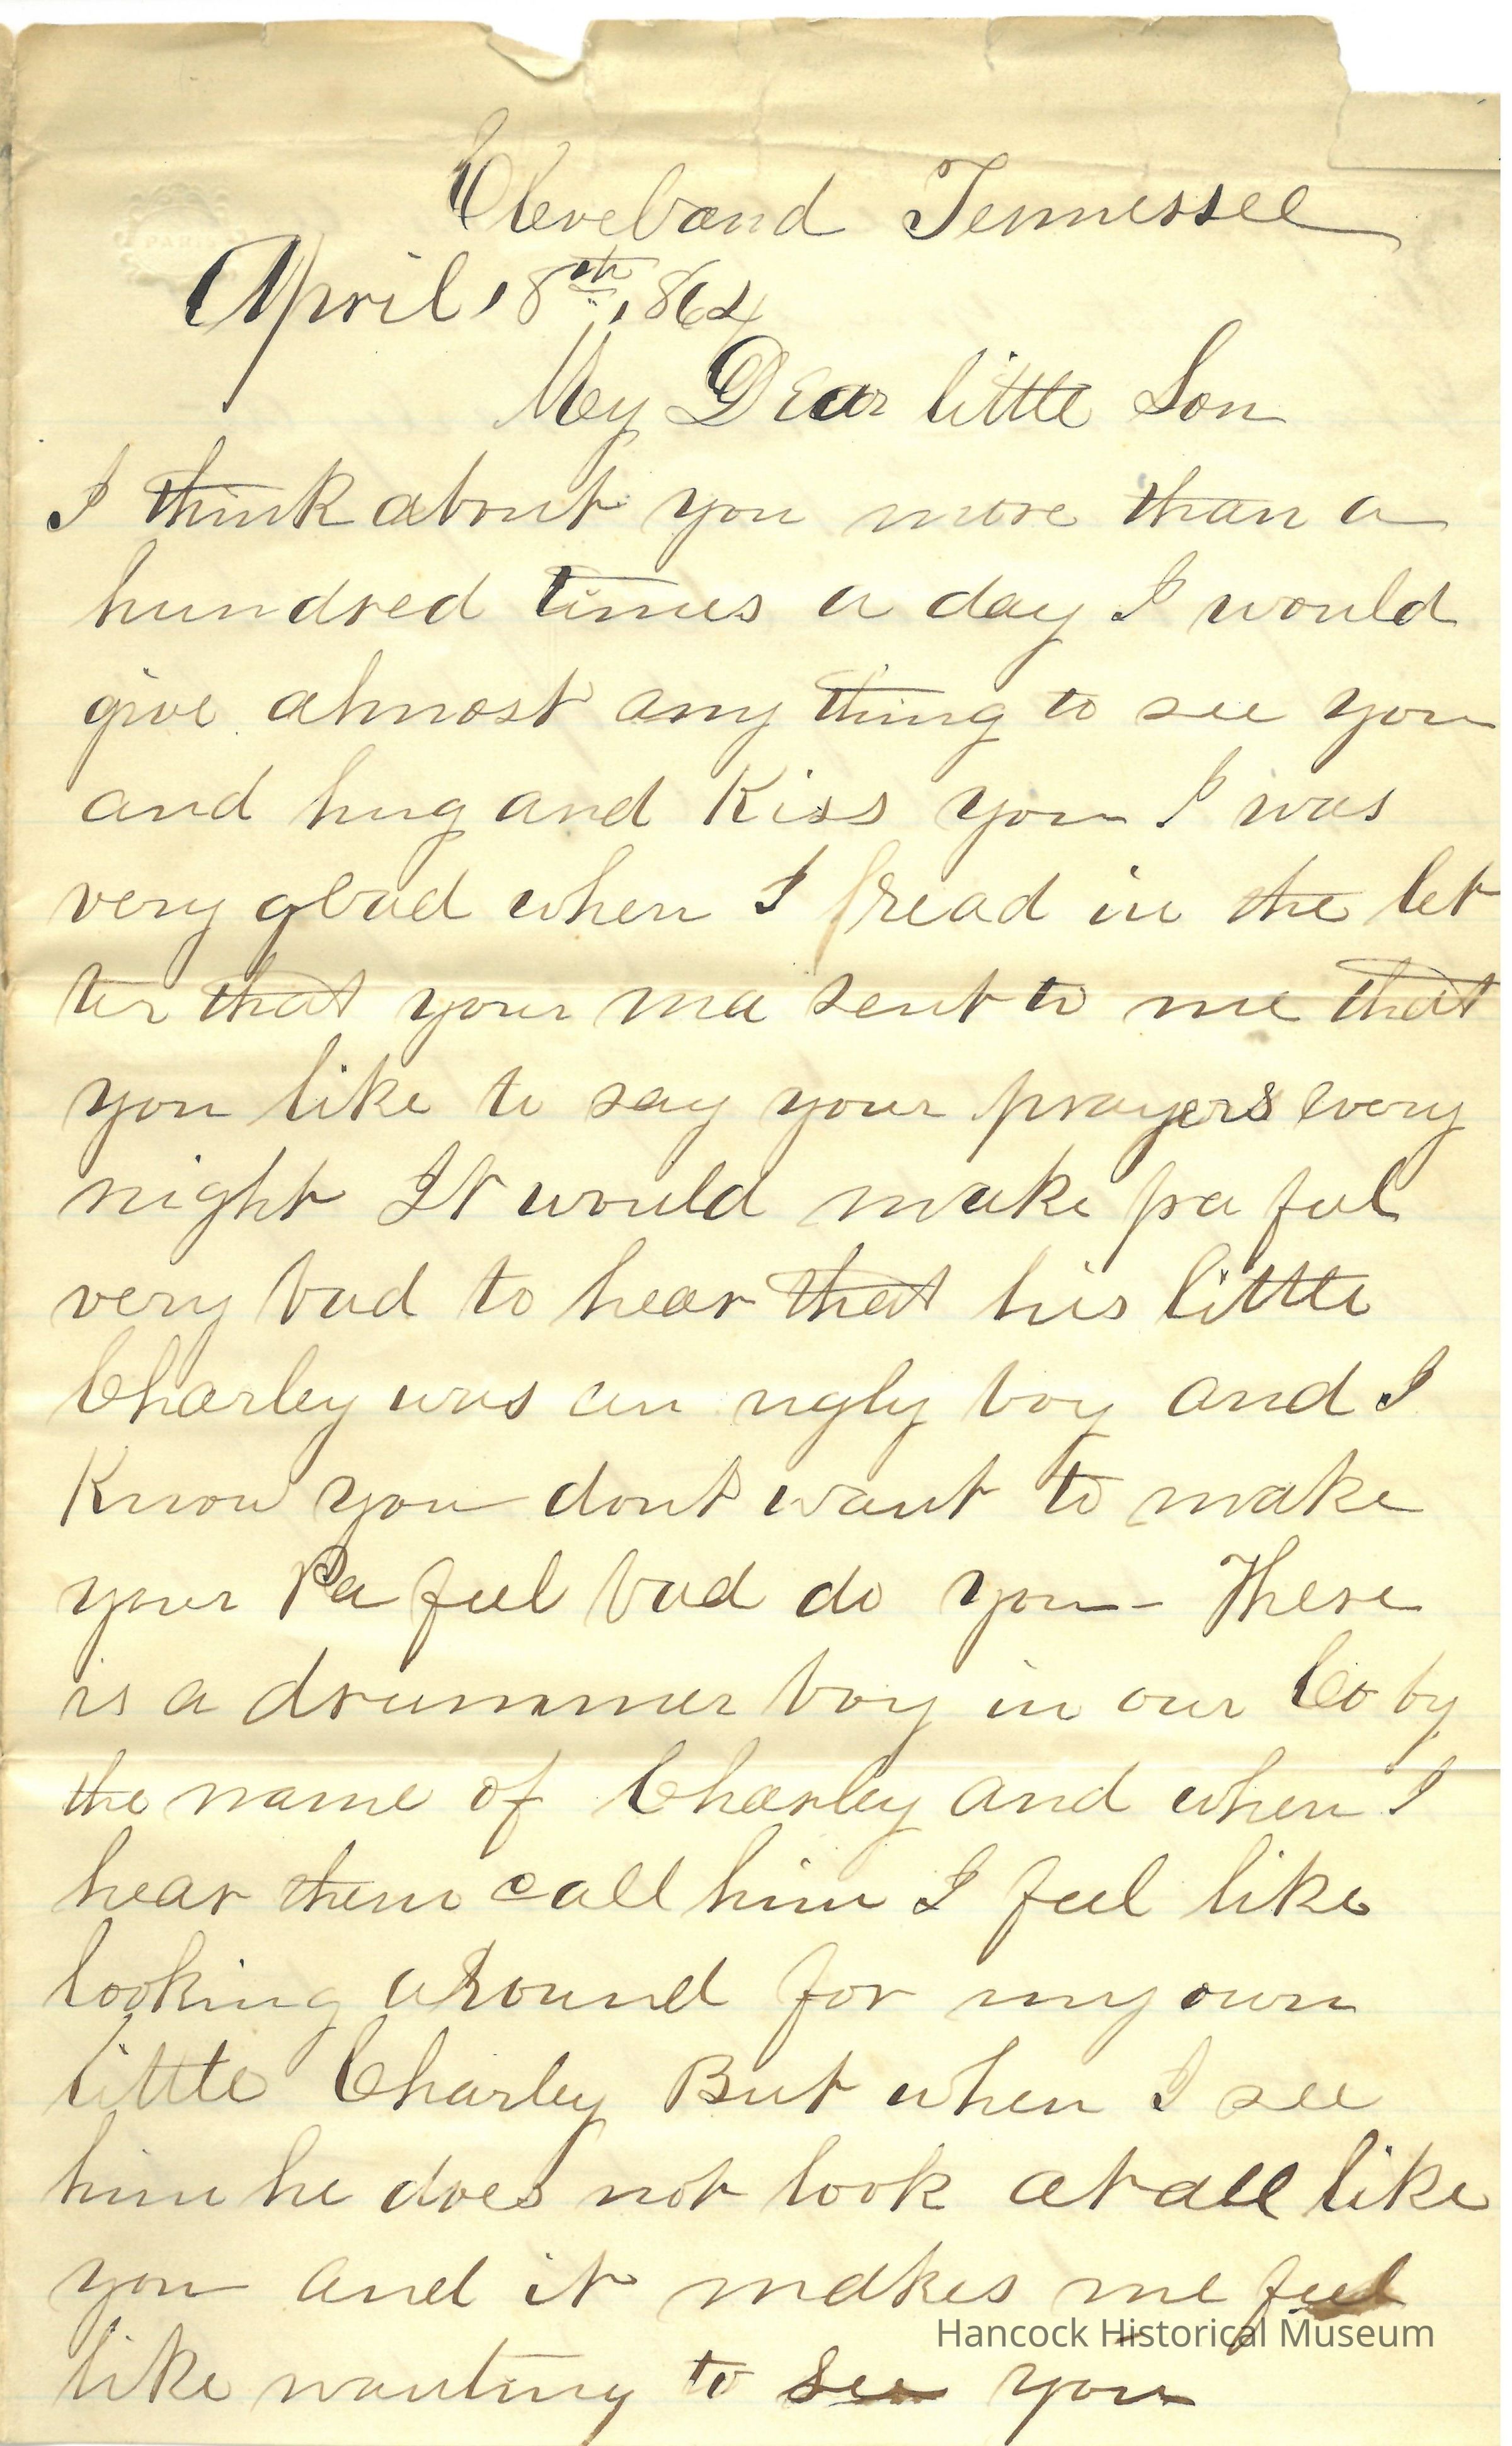 Cleveland Tennessee
April 18th 1864
My Dear little Son
I think about you more than a
hundred times a day I would
give almost any thing to see you
and hug and Kiss you I was
very glad when I read in the let
ter that your ma sent to me that
you like to say your prayers every
night It would make pa feel
very bad to hear that his little
Charley was an ugly boy and I
Know you dont want to make
your Pa feel bad do you - There
is a drummer boy in our Co by
the name of Charley and when I
hear them call him I feel like
looking around for my own
little Charley But when I see
him he does not look at all like
you and it makes me feel
Hancock Historical Museum
like wanting to see you